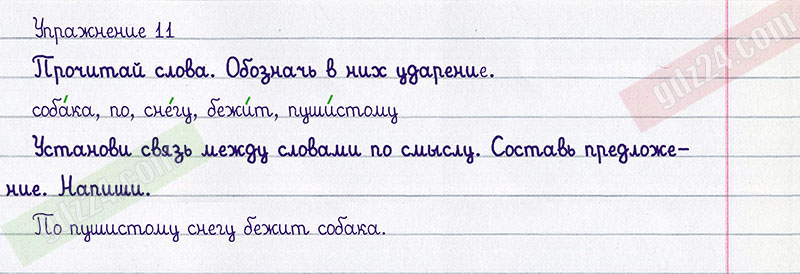 Упражнение 11
Прочитай слова. Обозначь в них ударение.
соба́ка, по, сне́гу, бежи́т, пуши́стому
Установи связь между словами по смыслу. Составь предложе-
ние. Напиши.
По пушистому снегу бежит собака.
gdz24.com
gdz24.com